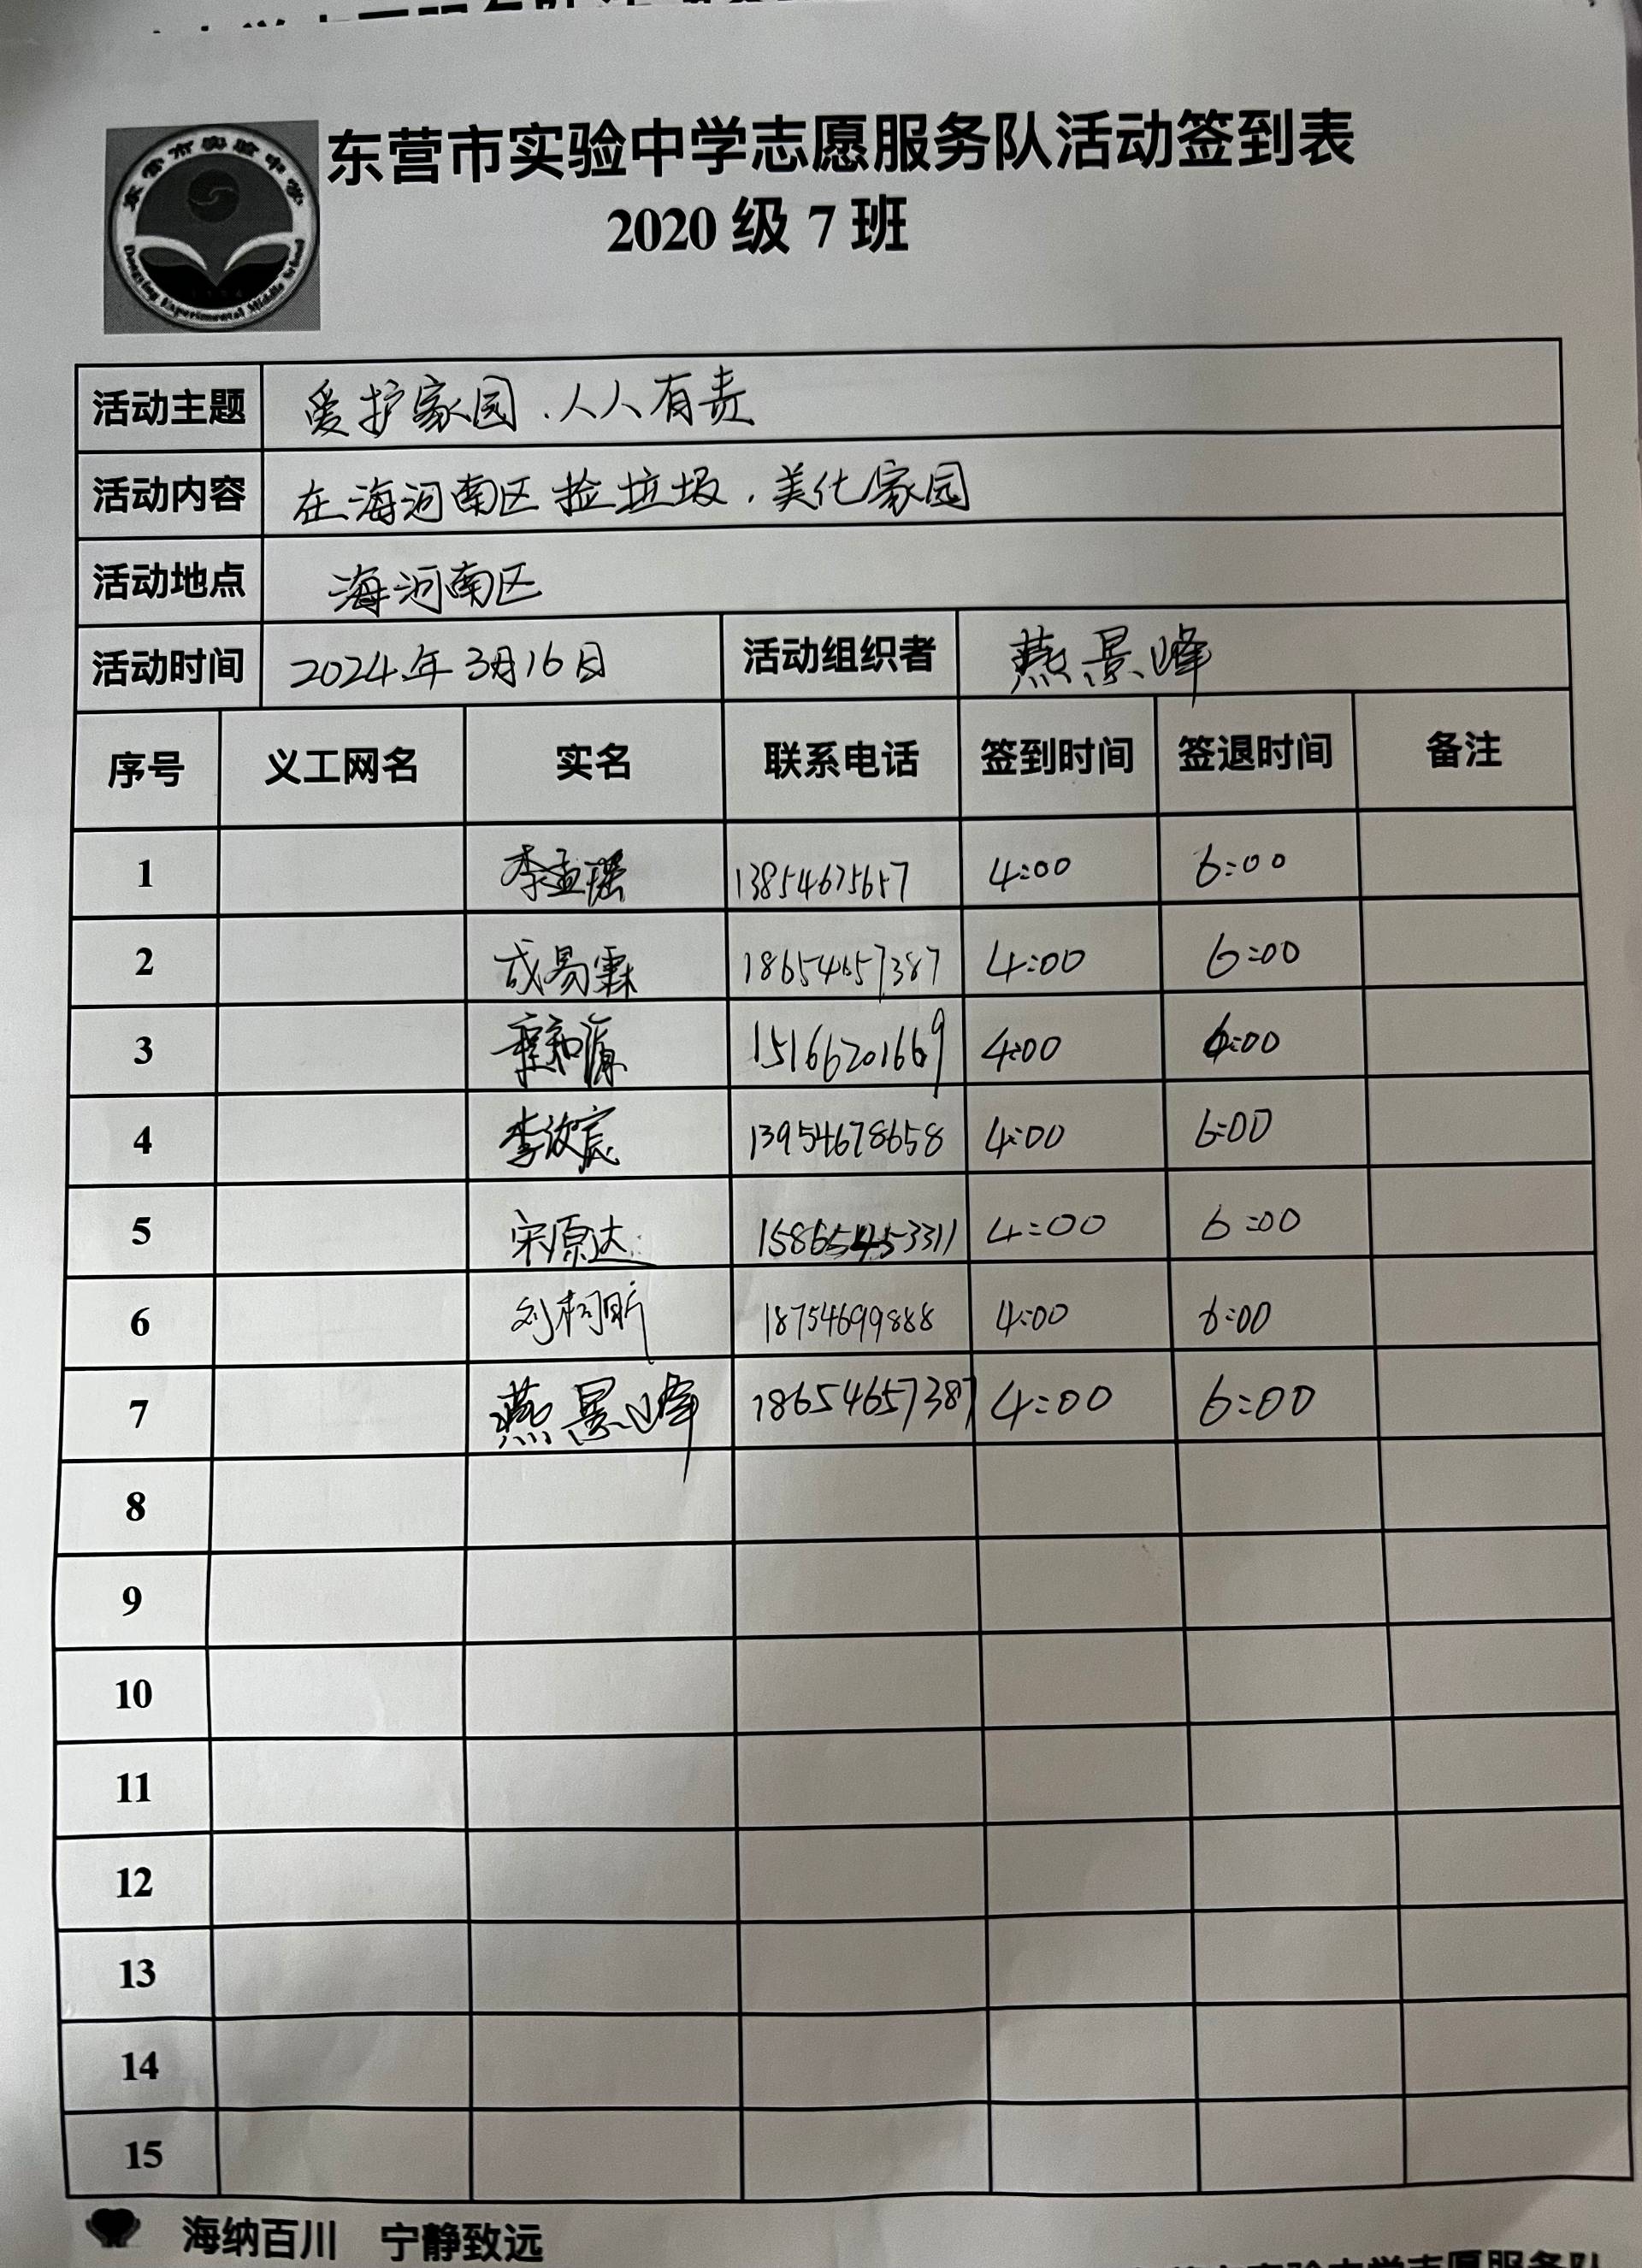 东营市实验中学志愿服务队活动签到表
2020 级 7 班
东营市实验中学
Dongying Experimental Middle School
活动主题 爱护家园.人人有责
活动内容 在海河南区捡垃圾.美化家园
活动地点 海河南区
活动时间 2024年3月16日 活动组织者 燕景峰
序号 义工网名 实名 联系电话 签到时间 签退时间 备注
1 李孟瑶 13854675657 4:00 6:00
2 成易霖 18654657387 4:00 6:00
3 15166201669 4:00 6:00
4 李 宸 13954678658 4:00 6:00
5 宋原达 15865453311 4:00 6:00
6 刘柯昕 18754699888 4:00 6:00
7 燕景峰 18654657387 4:00 6:00
8
9
10
11
12
13
14
15
海纳百川 宁静致远